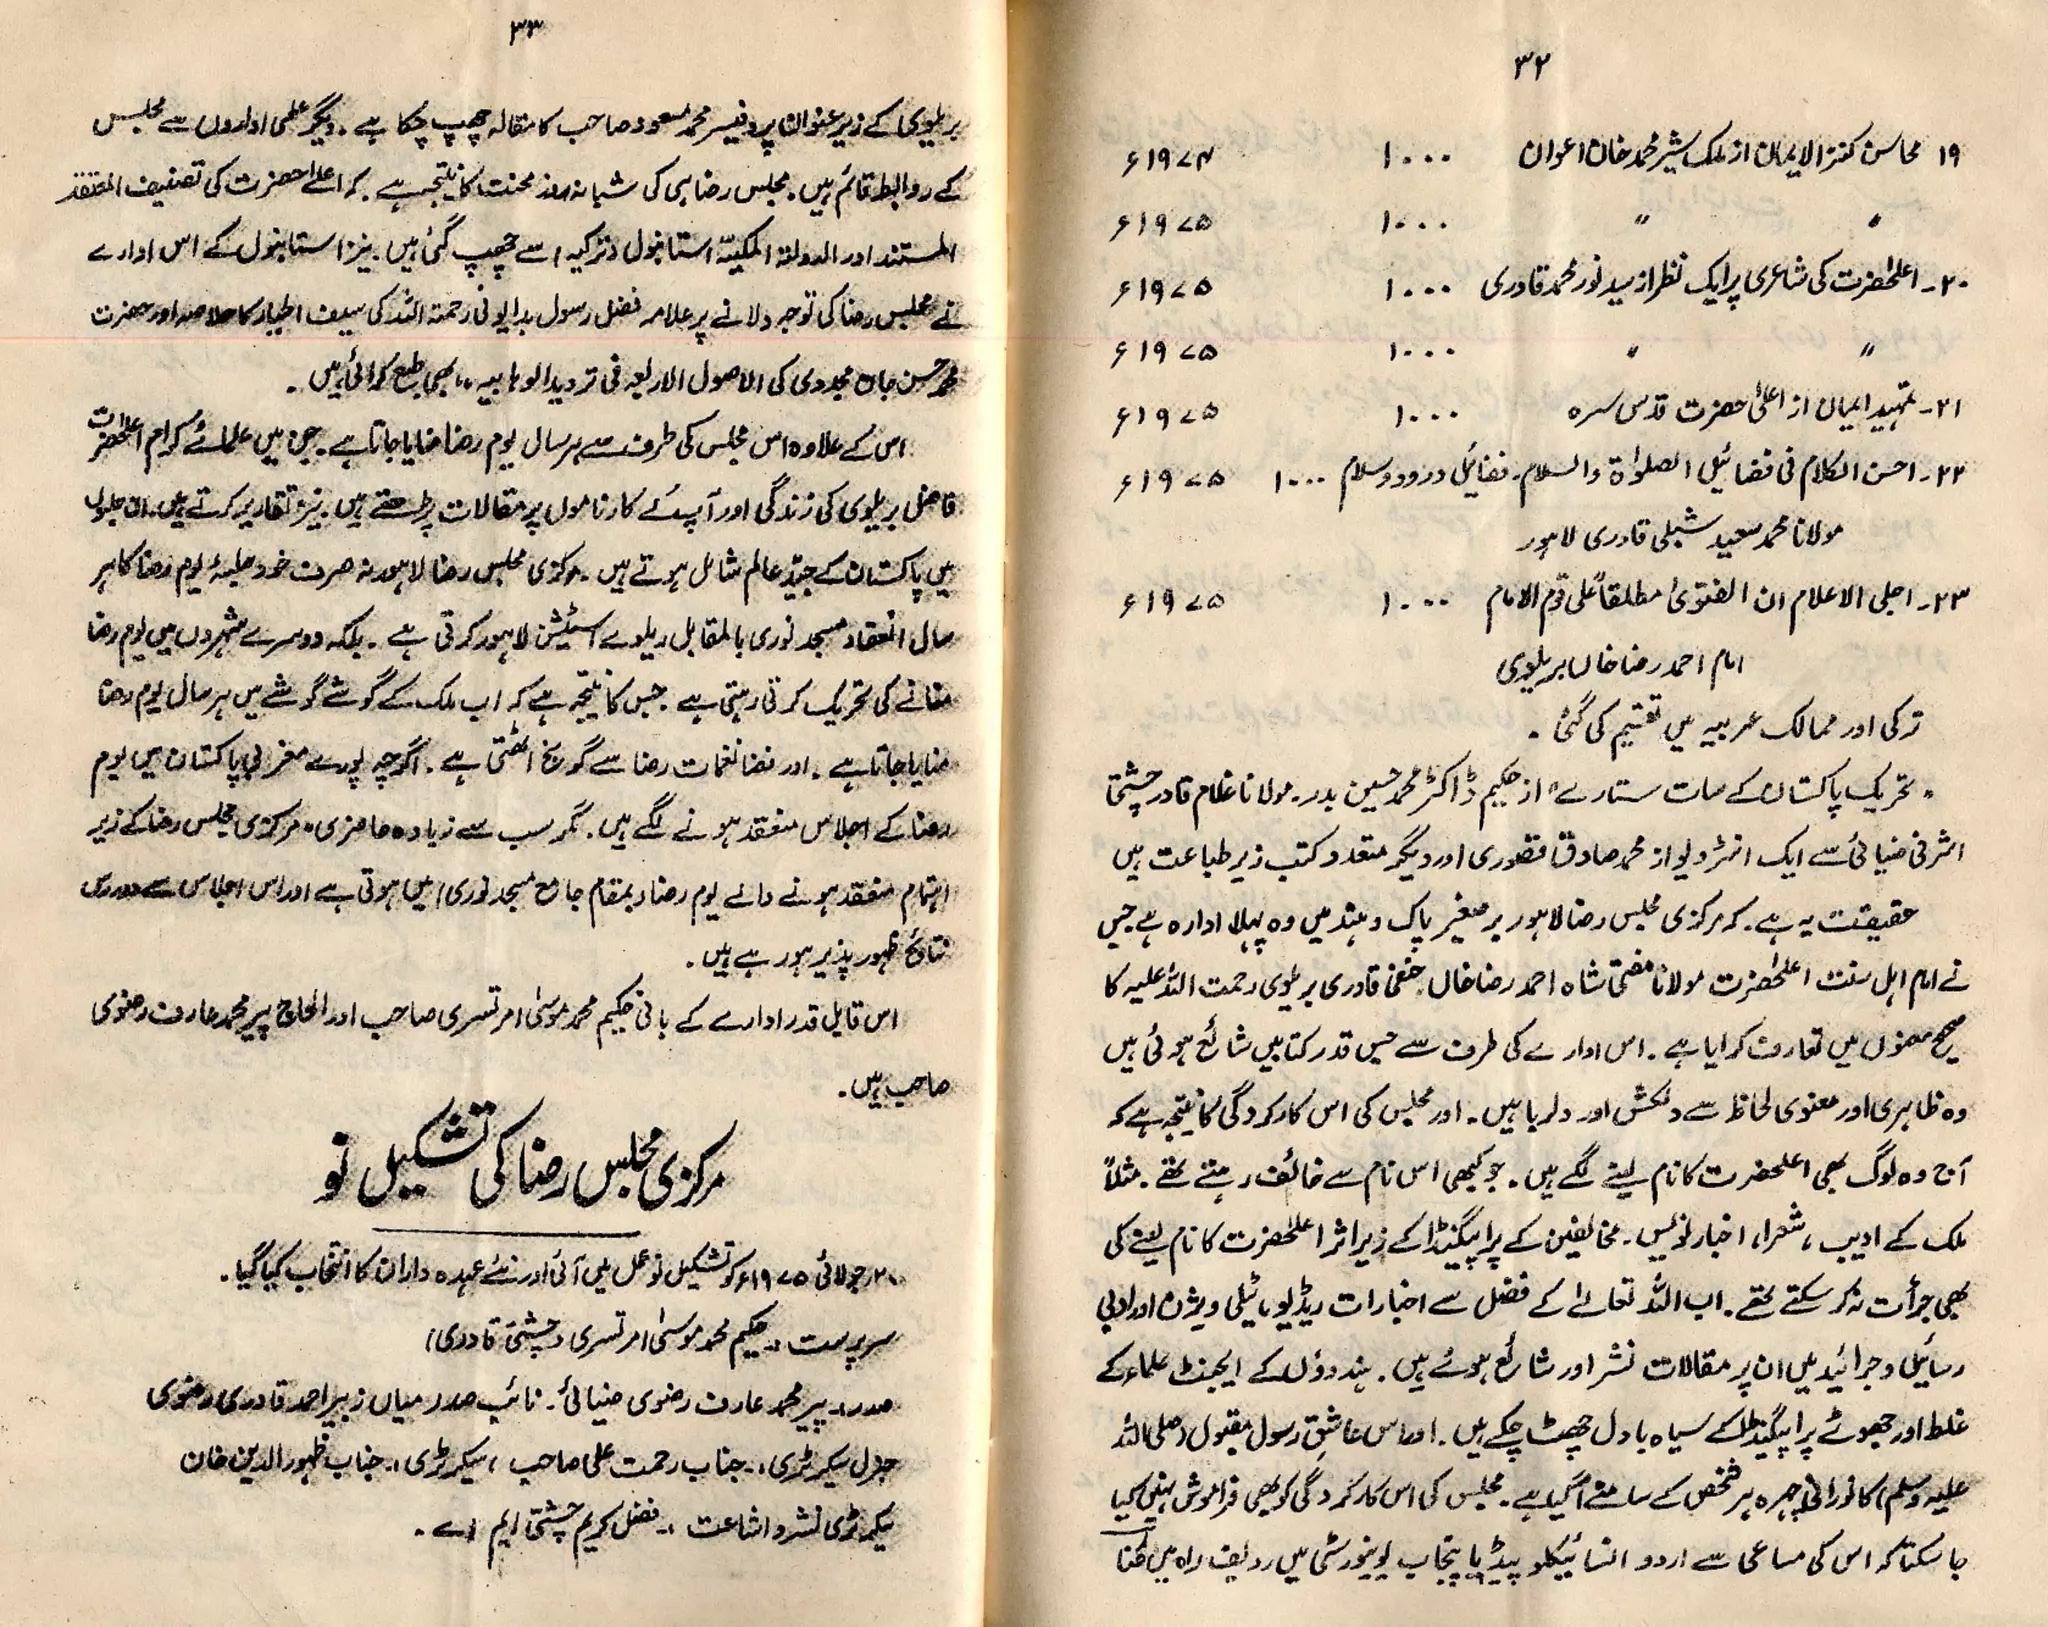 ۳۲
۱۹ محاسن کنز الایمان از ملک شیر محمد خان اعوان ۱۰۰۰ ۱۹۷۴ء
〃 〃 ۱۰۰۰ ۱۹۷۵ء
۲۰۔ اعلحضرت کی شاعری پر ایک نظر از سید نور محمد قادری ۱۰۰۰ ۱۹۷۵ء
〃 〃 ۱۰۰۰ ۱۹۷۵ء
۲۱۔ تمہید ایمان از اعلیٰ حضرت قدس سرہ ۱۰۰۰ ۱۹۷۵ء
۲۲۔ احسن الکلام فی فضائیل الصلوٰۃ والسلام۔ فضائیل درود وسلام ۱۰۰۰ ۱۹۷۵ء
مولانا محمد سعید شبلی قادری لاہور
۲۳۔ اجلی الاعلام ان الفتویٰ مطلقاً علی قوم الامام ۱۰۰۰ ۱۹۷۵ء
امام احمد رضا خاں بریلوی
ترکی اور ممالک عربیہ میں تقسیم کی گئی ۔
"تحریک پاکستان کے سات ستارے" از حکیم ڈاکٹر محمد حسین بدر۔ مولانا غلام قادر چشتی
اشرفی ضیائی سے ایک انٹرویو از محمد صادق قصوری اور دیگر متعدد کتب زیر طباعت ہیں
حقیقت یہ ہے۔ کہ مرکزی مجلس رضا لاہور برصغیر پاک وہند میں وہ پہلا ادارہ ہے جس
نے امام اہل سنت اعلحضرت مولانا مفتی شاہ احمد رضا خاں حنفی قادری بریلوی رحمت اللہ علیہ کا
صحیح معنوں میں تعارف کرایا ہے ۔ اس ادارے کی طرف سے جس قدر کتابیں شائع ہوئی ہیں
وہ ظاہری اور معنوی لحاظ سے دلکش اور دلربا ہیں۔ اور مجلس کی اس کارکردگی کا نتیجہ ہے کہ
آج وہ لوگ بھی اعلحضرت کا نام لینے لگے ہیں۔ جو کبھی اس نام سے خائف رہتے تھے ۔ مثلاً
ملک کے ادیب ، شعراء، اخبار نویس۔ مخالفین کے پراپیگنڈا کے زیر اثر اعلحضرت کا نام لینے کی
بھی جرأت نہ کر سکتے تھے ۔ اب اللہ تعالےٰ کے فضل سے اخبارات ریڈیو، ٹیلی ویژن اور ادبی
رسائیل وجرائید میں ان پر مقالات نشر اور شائع ہوئے ہیں۔ ہندوؤں کے ایجنٹ علماء کے
غلط اور جھوٹے پراپیگنڈا کے سیاہ بادل چھٹ چکے ہیں۔ اور اس عاشقِ رسول مقبول (صلی اللہ
علیہ وسلم) کا نورانی چہرہ ہر شخص کے سامنے آگیا ہے۔ مجلس کی اس کارکردگی کو بھی فراموش نہیں کیا
جا سکتا کہ اس کی مساعی سے اردو انسائیکلو پیڈیا پنجاب یونیورسٹی میں ردیف راہ میں
۳۳
بریلوی کے زیر عنوان پروفیسر محمد مسعود صاحب کا مقالہ چھپ چکا ہے ۔ دیگر علمی اداروں سے مجلس
کے روابط قائم ہیں۔ مجلس رضا ہی کی شبانہ روز محنت کا نتیجہ ہے ۔ کہ اعلےٰ حضرت کی تصنیف المعتقد
المستند اور الدولۃ المکیتہ استانبول (ترکیہ) سے چھپ گئی ہیں ۔ نیز استانبول کے اس ادارے
نے مجلس رضا کی توجہ دلانے پر علامہ فضل رسول بدایونی رحمتہ اللہ کی سیف الجبار کا خلاصہ اور حضرت
محمد حسن جان مجددی کی الاصول الاربعہ فی تردید الوہابیہ ،، بھی طبع کرائی ہیں ۔
اس کے علاوہ اس مجلس کی طرف سے ہر سال یوم رضا منایا جاتا ہے۔ جن میں علمائے کرام اعلحضرت
فاضل بریلوی کی زندگی اور آپ کے کارناموں پر مقالات پڑھتے ہیں ۔ نیز تقاریر کرتے ہیں۔ ان جلسوں
میں پاکستان کے جیّد عالم شامل ہوتے ہیں ۔ مرکزی مجلس رضا لاہور نہ صرف خود جلسۂ یوم رضا کا ہر
سال انعقاد مسجد نوری بالمقابل ریلوے اسٹیشن لاہور کرتی ہے ۔ بلکہ دوسرے شہروں میں یوم رضا
منانے کی تحریک کرتی رہتی ہے ۔ جس کا نتیجہ ہے کہ اب ملک کے گوشے گوشے میں ہر سال یوم رضا
منایا جاتا ہے ۔ اور فضا نغمات رضا سے گونج اٹھتی ہے۔ اگرچہ پورے مغربی پاکستان میں یوم
رضا کے اجلاس منعقد ہونے لگے ہیں۔ مگر سب سے زیادہ حاضری، مرکزی مجلس رضا کے زیر
اہتمام منعقد ہونے والے یوم رضا (بمقام جامع مسجد نوری) میں ہوتی ہے اور اس اجلاس سے دوررس
نتائج ظہور پذیر ہو رہے ہیں ۔
اس قابل قدر ادارے کے بانی حکیم محمد موسیٰ امرتسری صاحب اور الحاج پیر محمد عارف رضوی
صاحب ہیں ۔
مرکزی مجلس رضا کی تشکیل نو
جولائی ۱۹۷۵ء کو تشکیل نو عمل میں آئی اور نئے عہدہ داران کا انتخاب کیا گیا ۔
سرپرست :۔ حکیم محمد موسیٰ امرتسری (چشتی قادری)
صدر:۔ پیر محمد عارف رضوی ضیائی۔ نائب صدر میاں زبیر احمد قادری رضوی
جنرل سیکرٹری:۔ جناب رحمت علی صاحب ، سیکرٹری:۔ جناب ظہور الدین خان
سیکرٹری نشر واشاعت :۔ فضل کریم چشتی ایم اے ۔